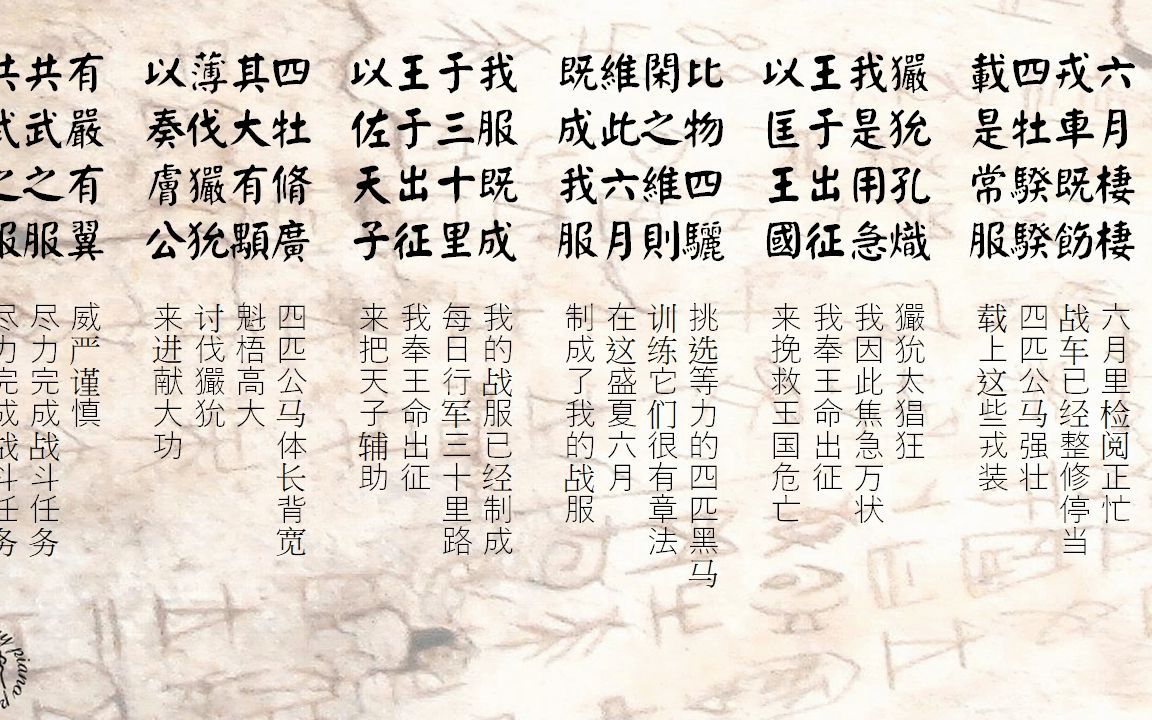 六月棲棲
戎車既飭
四牡騤騤
載是常服
玁狁孔熾
我是用急
王于出征
以匡王國
比物四驪
閑之維則
維此六月
既成我服
我服既成
于三十里
王于出征
以佐天子
四牡脩廣
其大有顒
薄伐玁狁
以奏膚公
有嚴有翼
共武之服
共武之服
六月里检阅正忙
战车已经整修停当
四匹公马强壮
载上这些戎装
玁狁太猖狂
我因此焦急万状
我奉王命出征
来挽救王国危亡
挑选等力的四匹黑马
训练它们很有章法
在这盛夏六月
制成了我的战服
我的战服已经制成
每日行军三十里路
我奉王命出征
来把天子辅助
四匹公马体长背宽
魁梧高大
讨伐玁狁
来进献大功
威严谨慎
尽力完成战斗任务
尽力完成战斗任务
piano